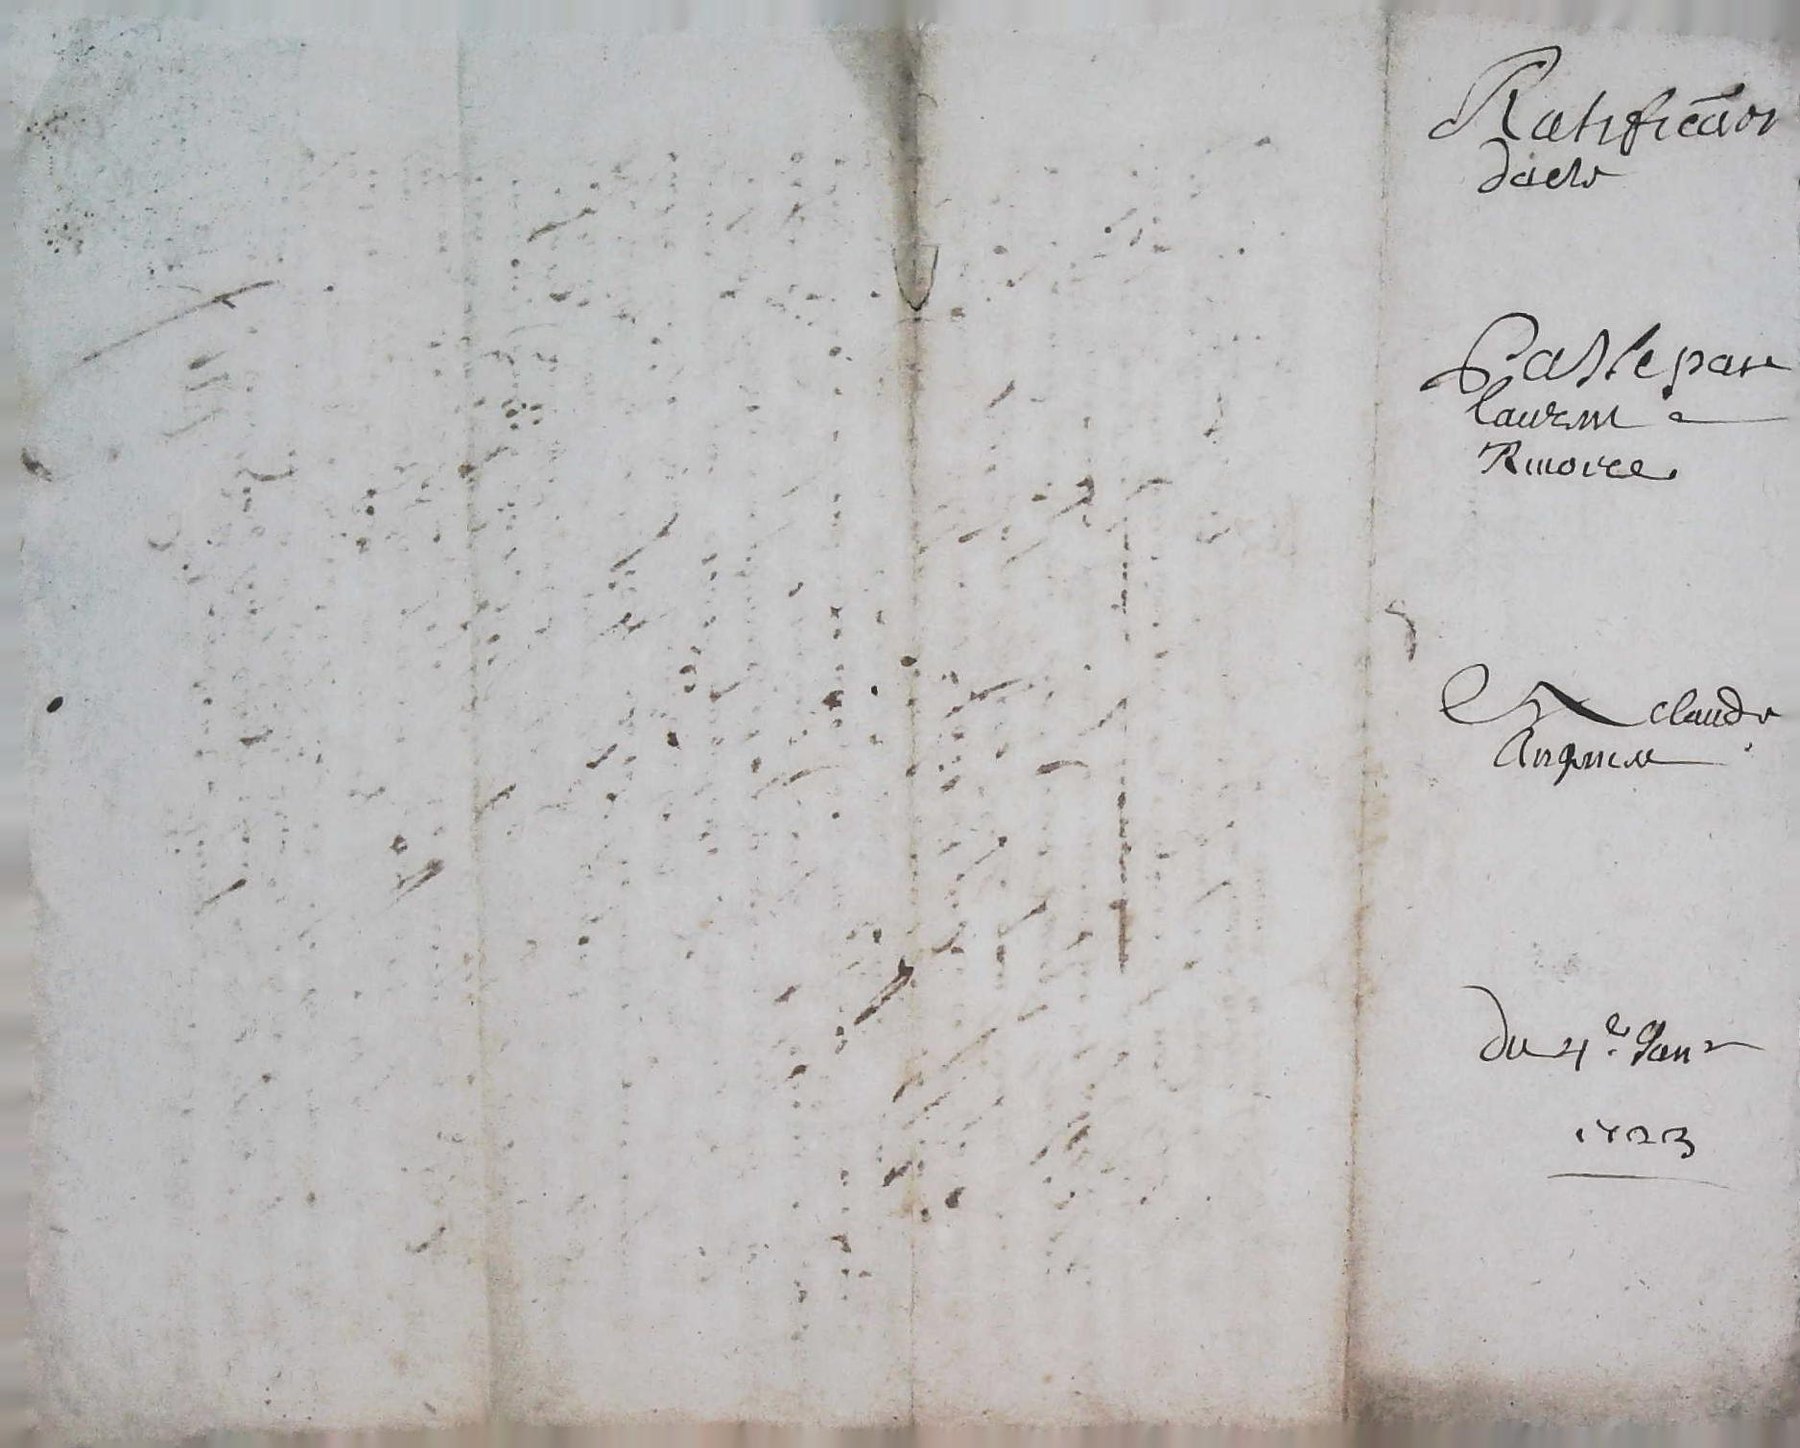 Ratificaōn
dacte
Passe par
laurent
Rivoire
Et claude
du 4e Janr
1723